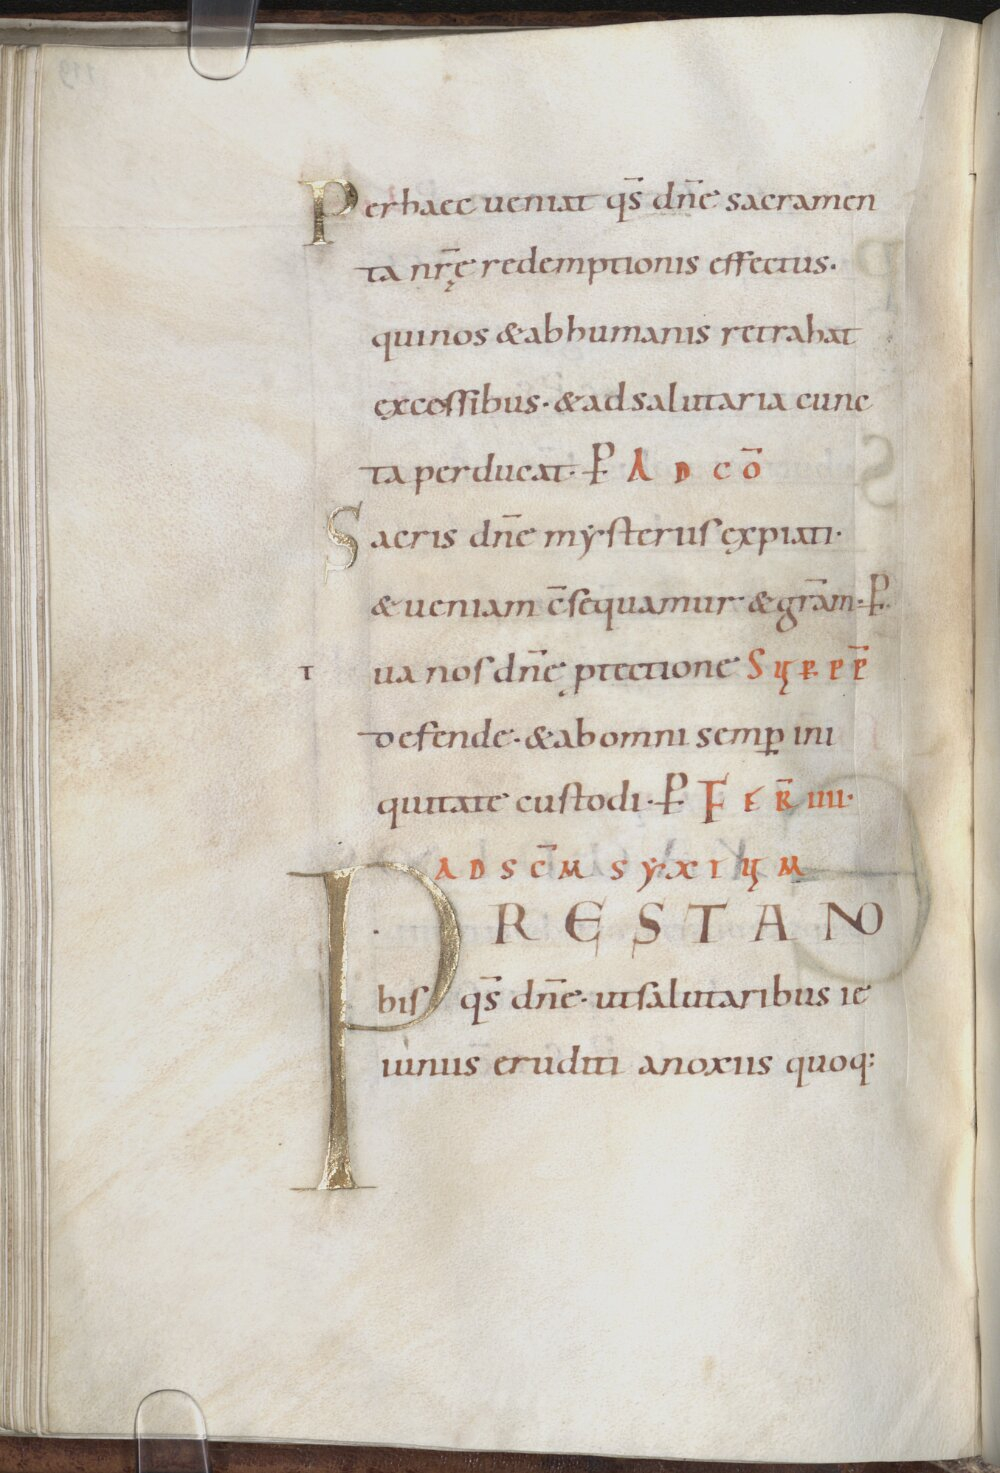 Per haec ueniat qs̄ dn̄e sacramen
ta nr̄ę redemptionis effectus.
qui nos & ab humanis retrahat
excessibus. & ad salutaria cunc
ta perducat. P AD CŌ
Sacris dn̄e mysteriis expiati.
& ueniam c̄sequamur & gr̄am. P
Tua nos dn̄e ꝓtectione SUP
defende. & ab omni semꝑ ini
quitate custodi. P FER̄ IIII.
AD SC̄M SYXTUM
PRESTA NO
bis qs̄ dn̄e. ut salutaribus ie
iuniis eruditi a noxiis quoq: